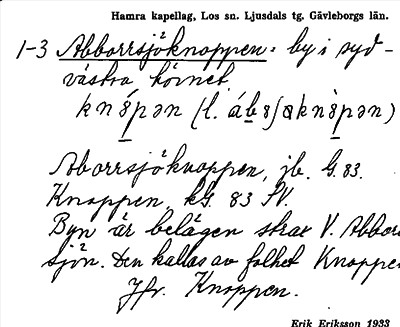 Hamra kapellag, Los sn. Ljusdals tg. Gävleborgs län.
1-3 Abborrsjöknoppen: by i syd-
västra hörnet.
Aborrsjöknoppen, jb. G. 83.
Knoppen, kG. 83 SV.
Byn är belägen strax V. Abborr
sjön. Den kallas av folket Knoppen
Jfr. Knoppen.
Erik Eriksson 1933